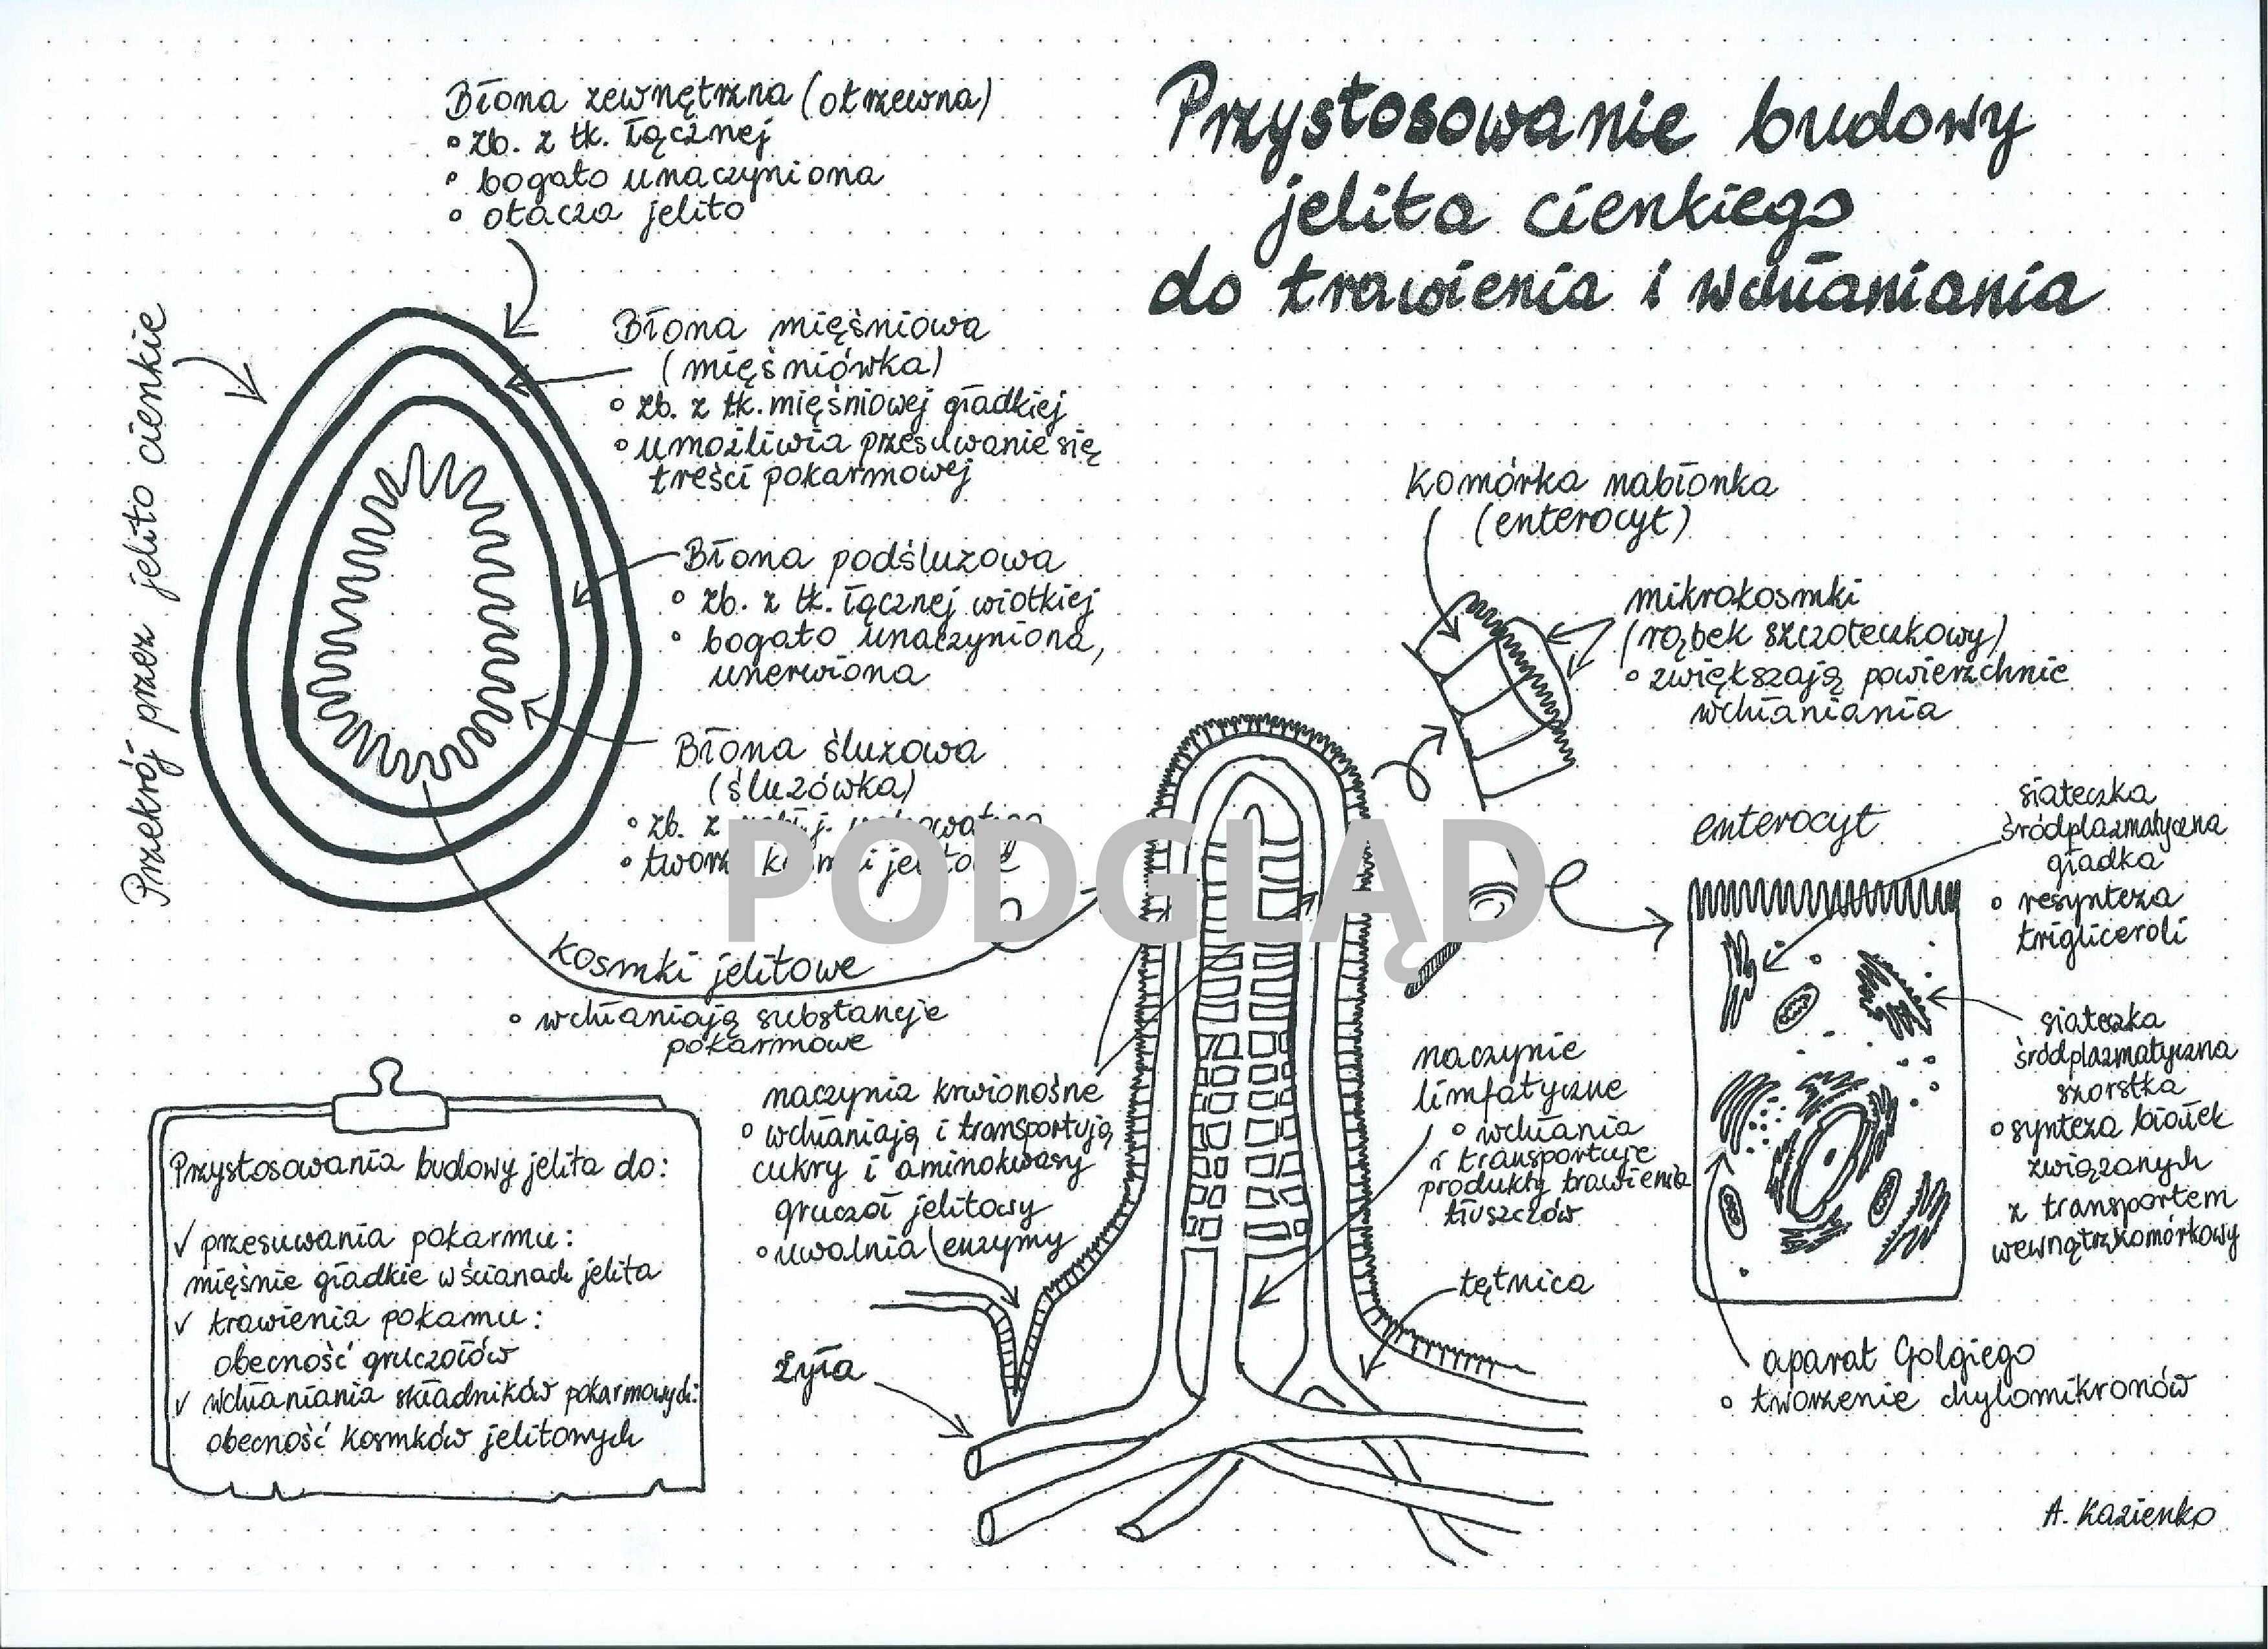 Przystosowanie budowy
jelita cienkiego
do trawienia i wchłaniania
Błona zewnętrzna (otrzewna)
• zb. z tk. łącznej
• bogato unaczyniona
• otacza jelito
Przekrój przez jelito cienkie
Błona mięśniowa
(mięśniówka)
• zb. z tk. mięśniowej gładkiej
• umożliwia przesuwanie się
treści pokarmowej
Błona podśluzowa
• zb. z tk. łącznej wiotkiej
• bogato unaczyniona,
unerwiona
Błona śluzowa
(śluzówka)
• zb. z
• tworzy kosmki jelitowe
PODGLĄD
Kosmki jelitowe
• wchłaniają substancje
pokarmowe
Komórka nabłonka
(enterocyt)
mikrokosmki
(rąbek szczoteczkowy)
• zwiększają powierzchnie
wchłaniania
enterocyt
siateczka
śródplazmatyczna
gładka
• resynteza
trigliceroli
siateczka
śródplazmatyczna
szorstka
• synteza białek
związanych
z transportem
wewnątrzkomórkowy
aparat Golgiego
• tworzenie chylomikronów
naczynia krwionośne
• wchłaniają i transportują
cukry i aminokwasy
gruczoł jelitowy
• uwalnia enzymy
żyła
naczynie
limfatyczne
• wchłania
i transportuje
produkty trawienia
tłuszczów
tętnica
Przystosowania budowy jelita do:
✓ przesuwania pokarmu:
mięśnie gładkie w ścianach jelita
✓ trawienia pokamu:
obecność gruczołów
✓ wchłaniania składników pokarmowych:
obecność kosmków jelitowych
A. Kazienko